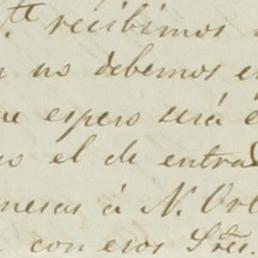 te recibimos
no debemos
espero será
el de entra
mesas á N. Orl
con esos Sres.